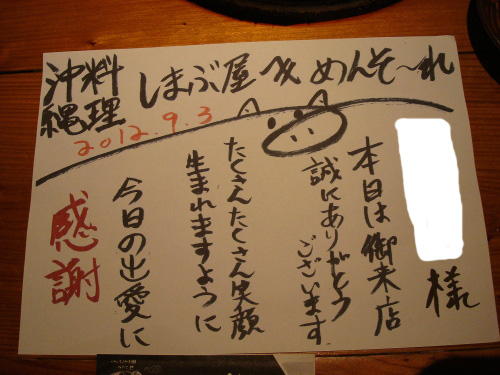 沖縄料理 しまぶ屋 へ めんそ〜れ
2012.9.3
様
本日は御来店
誠にありがとう
ございます
たくさんたくさん笑顔
生まれますように
今日の出愛に
感謝